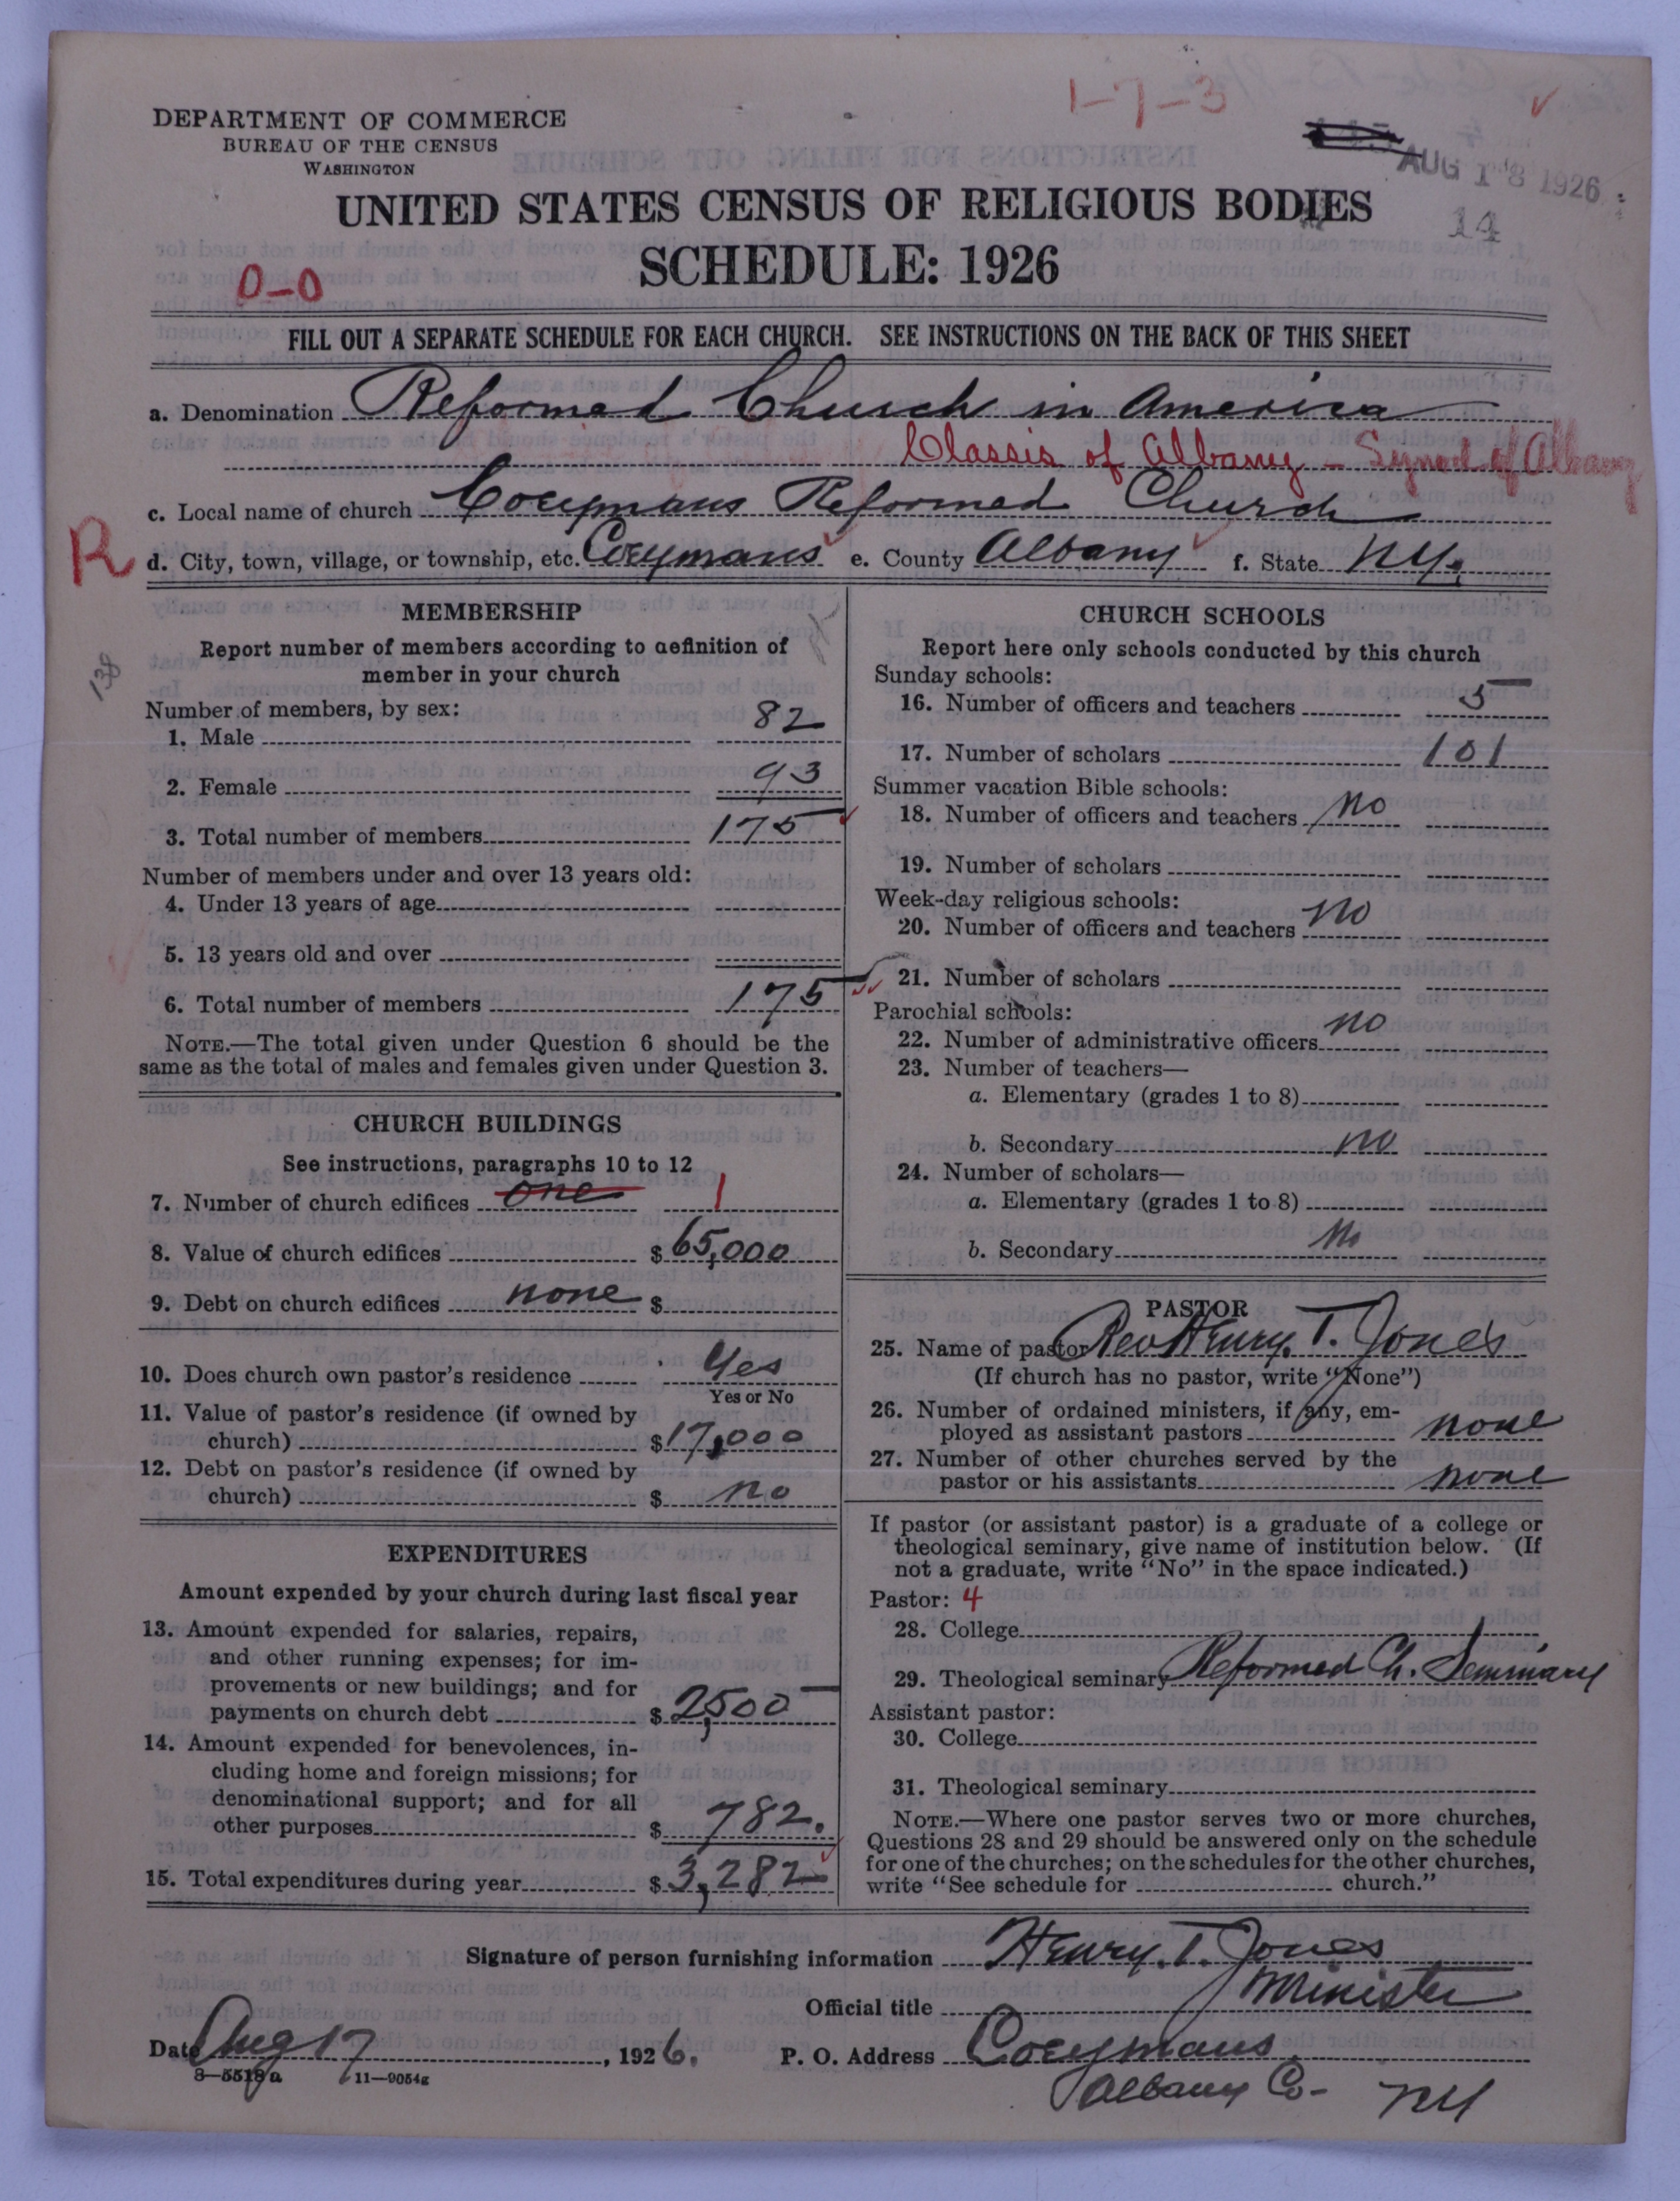 1-7-3
DEPARTMENT OF COMMERCE
BUREAU OF THE CENSUS
WASHINGTON
AUG 18 1926
14
UNITED STATES CENSUS OF RELIGIOUS BODIES
SCHEDULE: 1926
0-0
FILL OUT A SEPARATE SCHEDULE FOR EACH CHURCH. SEE INSTRUCTIONS ON THE BACK OF THIS SHEET
a. Denomination Reformed Church in America
Classis of Albany - Synod of Albany
c. Local name of church Coeymans Reformed Church
R
d. City, town, village, or township, etc. Coeymans e. County Albany f. State N.Y.
MEMBERSHIP
Report number of members according to definition of
member in your church
138
Number of members, by sex:
1. Male 82
2. Female 93
3. Total number of members 175
Number of members under and over 13 years old:
4. Under 13 years of age
5. 13 years old and over
6. Total number of members 175
NOTE.—The total given under Question 6 should be the
same as the total of males and females given under Question 3.
CHURCH BUILDINGS
See instructions, paragraphs 10 to 12
7. Number of church edifices one 1
8. Value of church edifices $65,000
9. Debt on church edifices none $
10. Does church own pastor's residence Yes
Yes or No
11. Value of pastor's residence (if owned by
church) $17,000
12. Debt on pastor's residence (if owned by
church) $ no
EXPENDITURES
Amount expended by your church during last fiscal year
13. Amount expended for salaries, repairs,
and other running expenses; for im-
provements or new buildings; and for
payments on church debt $2,500
14. Amount expended for benevolences, in-
cluding home and foreign missions; for
denominational support; and for all
other purposes $ 782.
15. Total expenditures during year $3,282
CHURCH SCHOOLS
Report here only schools conducted by this church
Sunday schools:
16. Number of officers and teachers 5
17. Number of scholars 101
Summer vacation Bible schools:
18. Number of officers and teachers no
19. Number of scholars
Week-day religious schools:
20. Number of officers and teachers no
21. Number of scholars
Parochial schools:
22. Number of administrative officers no
23. Number of teachers—
a. Elementary (grades 1 to 8)
b. Secondary no
24. Number of scholars—
a. Elementary (grades 1 to 8)
b. Secondary no
PASTOR
25. Name of pastor Rev Henry. T. Jones
(If church has no pastor, write "None")
26. Number of ordained ministers, if any, em-
ployed as assistant pastors none
27. Number of other churches served by the
pastor or his assistants none
If pastor (or assistant pastor) is a graduate of a college or
theological seminary, give name of institution below. (If
not a graduate, write "No" in the space indicated.)
Pastor: 4
28. College
29. Theological seminary Reformed Ch. Seminary
Assistant pastor:
30. College
31. Theological seminary
NOTE.—Where one pastor serves two or more churches,
Questions 28 and 29 should be answered only on the schedule
for one of the churches; on the schedules for the other churches,
write "See schedule for church."
Signature of person furnishing information Henry. T. Jones
Official title Minister
Date Aug 17, 1926. P. O. Address Coeymans
Albany Co- NY
8—5518a 11—9054g